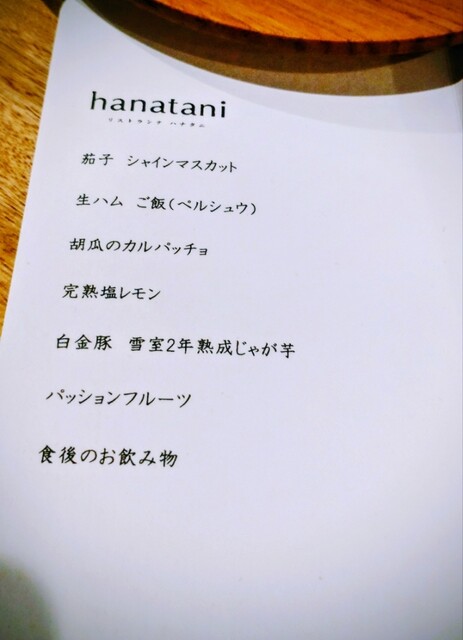 hanatani
リストランテ ハナタニ
茄子 シャインマスカット
生ハム ご飯(ペルシュウ)
胡瓜のカルパッチョ
完熟塩レモン
白金豚 雪室2年熟成じゃが芋
パッションフルーツ
食後のお飲み物